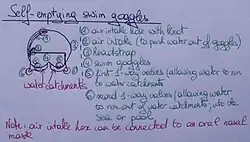 Self-emptying swim goggles
① air intake hose with knot
② air intake (to push water out of goggles)
③ headstrap
④ swim goggles
⑤ first 1-way valves (allowing water to run
to water catchments
⑥ second 1-way valves (allowing water
to run out of water catchments; into the
sea or pool
water catchments
Note: air intake hose can be connected to an oral nasal
mask